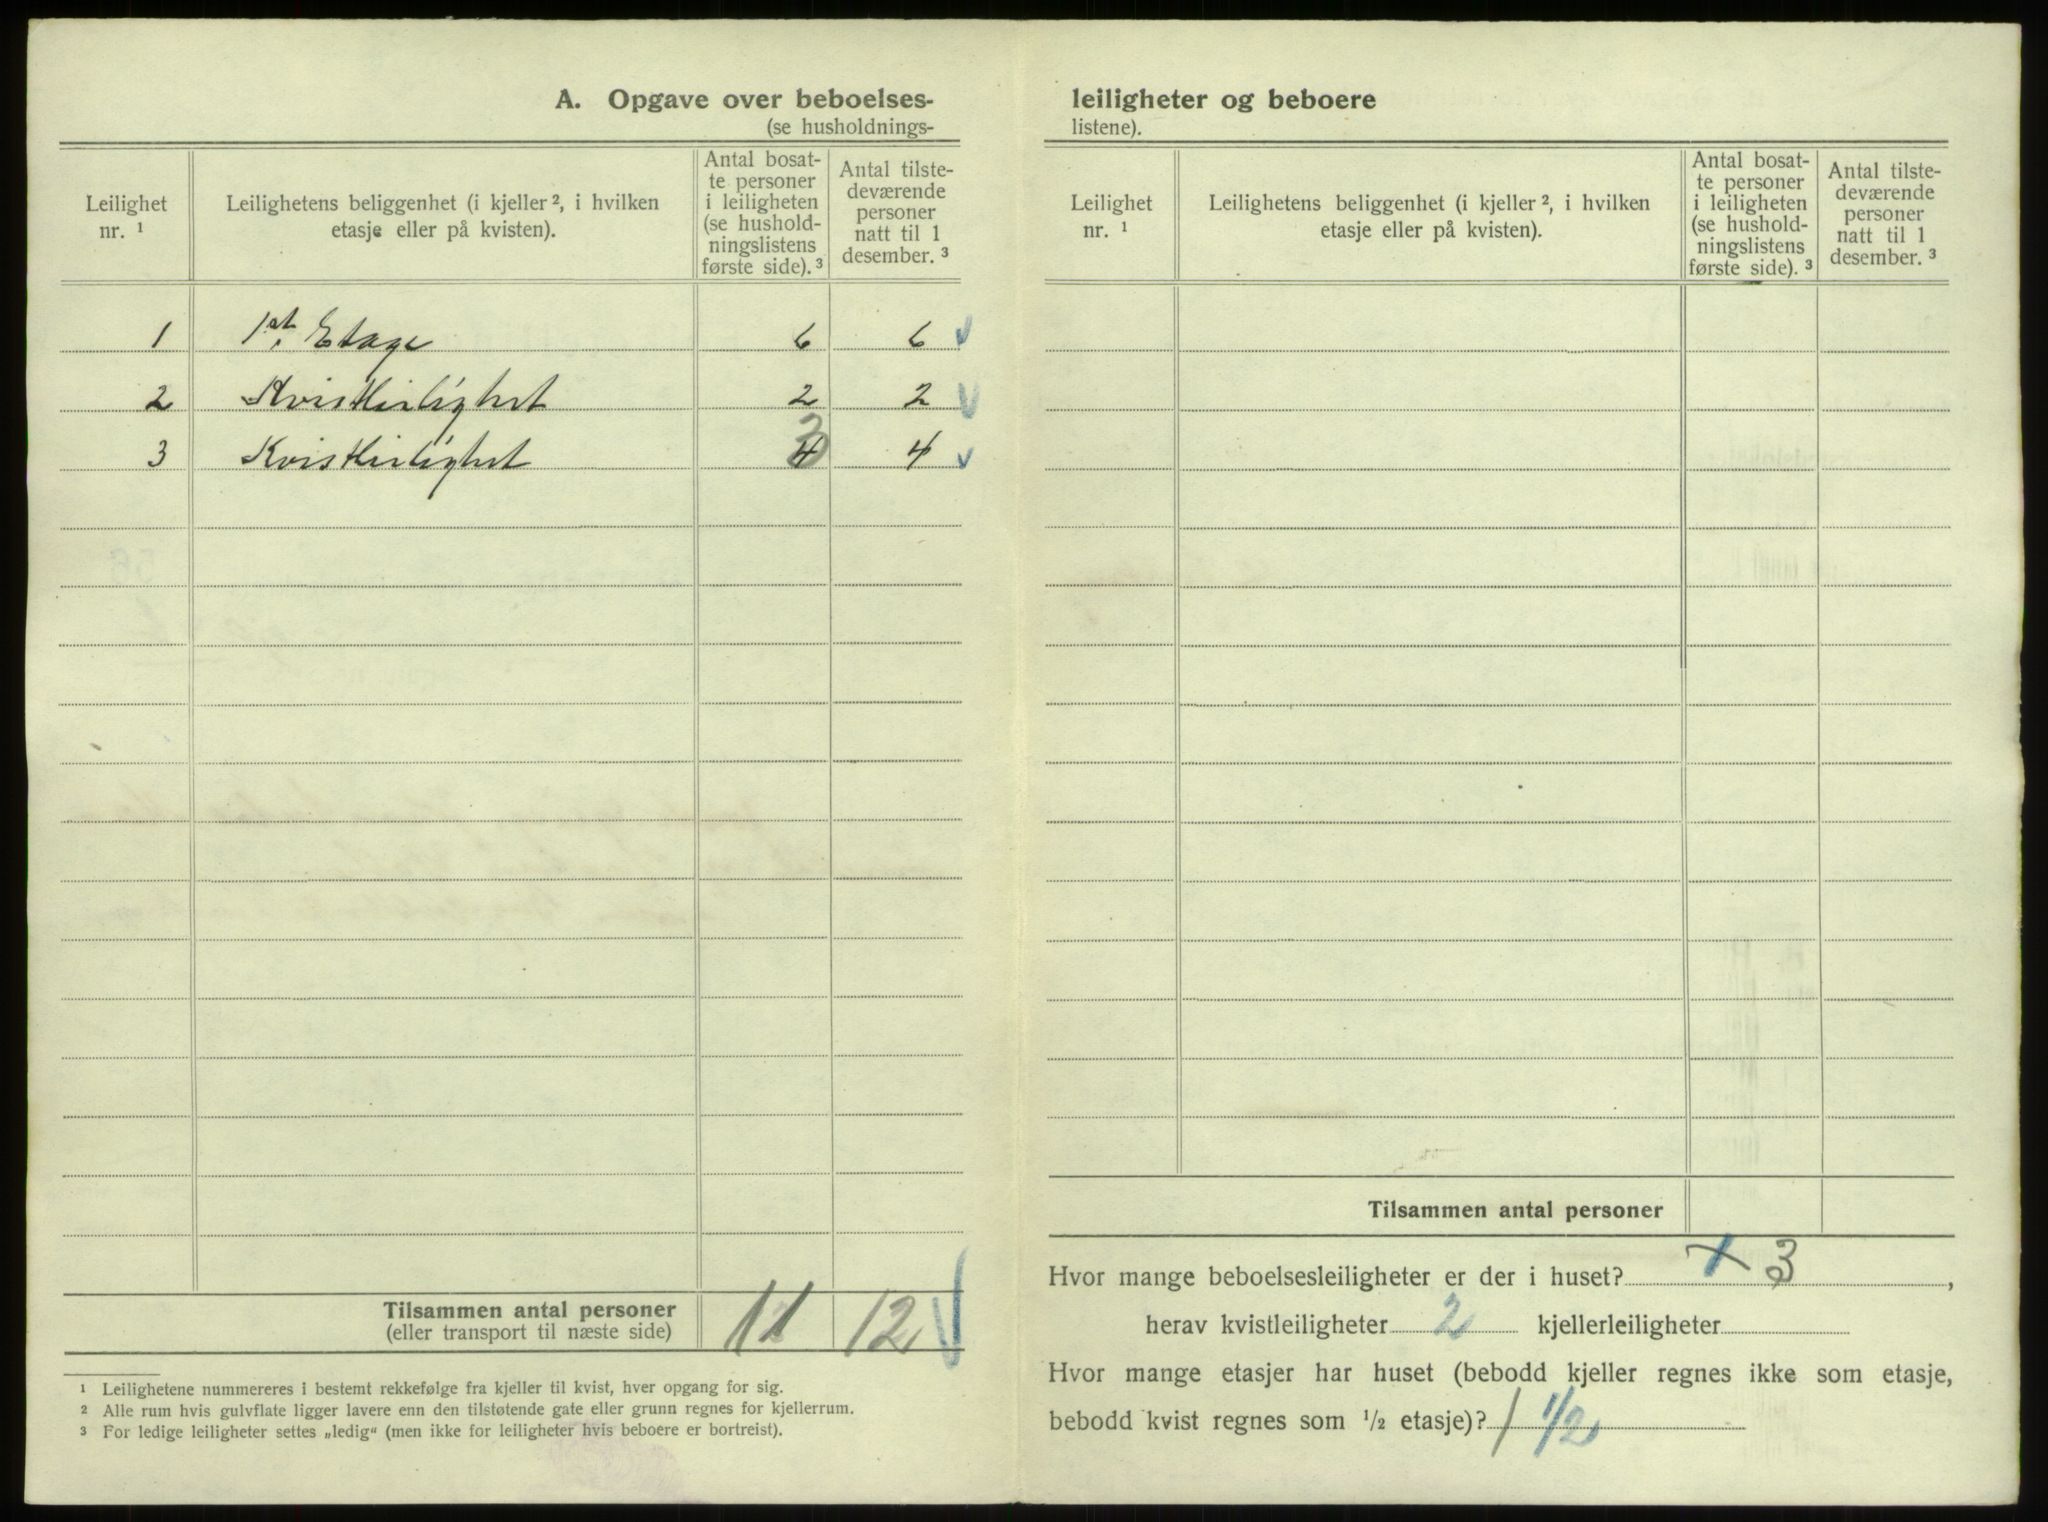 A. Opgave over beboelses-
(se husholdnings-
Leilighet
nr. ¹
Leilighetens beliggenhet (i kjeller ², i hvilken
etasje eller på kvisten).
Antal bosat-
te personer
i leiligheten
(se hushold-
ningslistens
første side). ³
Antal tilste-
deværende
personer
natt til 1
desember. ³
1 1st. Etage 6 6
2 Kvistleilighet 2 2
3 Kvistleilighet 4 3 4
Tilsammen antal personer
(eller transport til næste side) 11 12
¹ Leilighetene nummereres i bestemt rekkefølge fra kjeller til kvist, hver opgang for sig.
² Alle rum hvis gulvflate ligger lavere enn den tilstøtende gate eller grunn regnes for kjellerrum.
³ For ledige leiligheter settes „ledig“ (men ikke for leiligheter hvis beboere er bortreist).
leiligheter og beboere
listene).
Leilighet
nr. ¹
Leilighetens beliggenhet (i kjeller ², i hvilken
etasje eller på kvisten).
Antal bosat-
te personer
i leiligheten
(se hushold-
ningslistens
første side). ³
Antal tilste-
deværende
personer
natt til 1
desember. ³
Tilsammen antal personer
Hvor mange beboelsesleiligheter er der i huset? 3,
herav kvistleiligheter 2 kjellerleiligheter
Hvor mange etasjer har huset (bebodd kjeller regnes ikke som etasje,
bebodd kvist regnes som ½ etasje)? 1 1/2